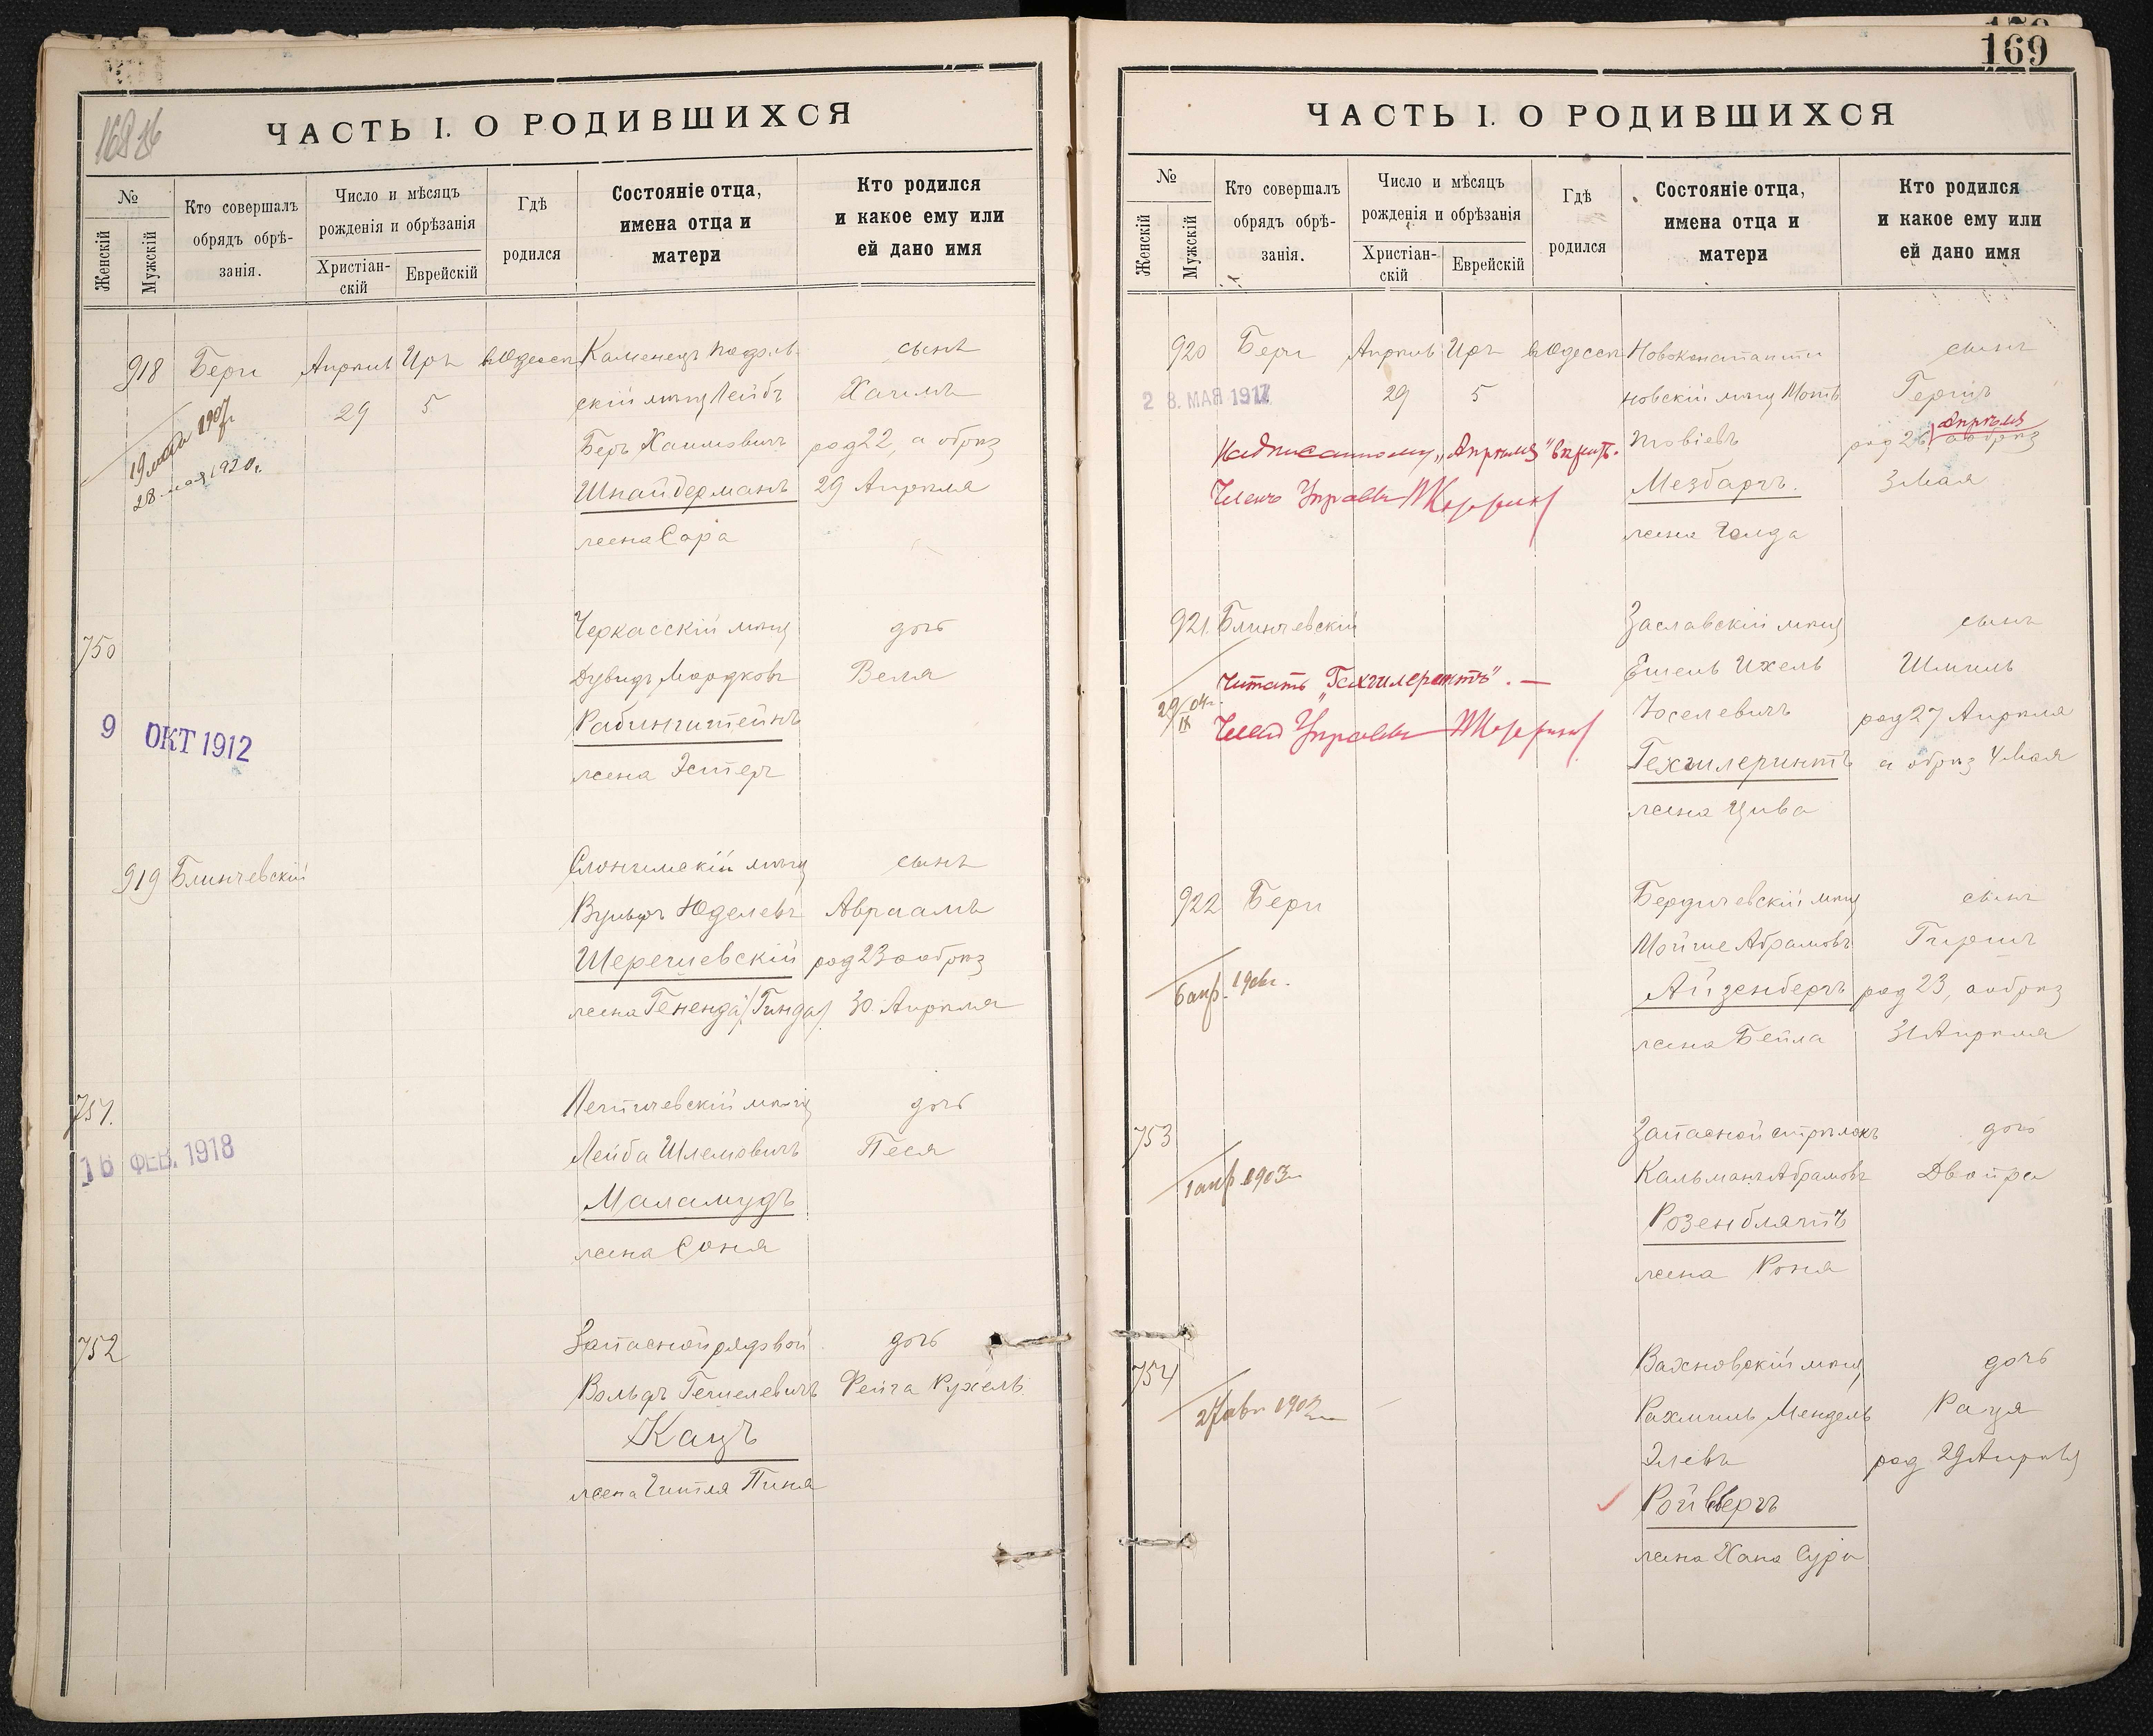 168 об
ЧАСТЬ I. О РОДИВШИХСЯ
№
Женскій
Мужскій
Кто совершалъ
обрядъ обрѣ-
занія.
Число и мѣсяцъ
рожденія и обрѣзанія
Христіан-
скій
Еврейскій
Гдѣ
родился
Состояніе отца,
имена отца и
матери
Кто родился
и какое ему или
ей дано имя
918 Бери Апрѣль Иръ въ Одессѣ Каменецъ Подоль- сынъ
29 5 скій мѣщ Лейбъ Хаимъ
19 мая 1907г
28 мая 1920г.
Беръ Хаимовичъ род 22, а обрѣз
Шнайдерманъ 29 Апрѣля
жена Сара
750 Черкасскій мѣщ дочь
Дувидъ Мордковъ Веля
Рабинштейнъ
9 ОКТ 1912
жена Эстеръ
919 Блинчевскій Слонимскій мѣщ сынъ
Вульфъ Юделевъ Авраамъ
Шерешевскій род 23 а обрѣз
жена Гененда /Гинда/ 30 Апрѣля
751. Летичевскій мѣщ дочь
16 ФЕВ. 1918
Лейба Шлемовичъ Песя
Маламудъ
жена Соня
752 Запасной рядовой дочь
Вольфъ Гешелевичъ Фейга Рухель
Кацъ
жена Гитля Пиня
169
ЧАСТЬ I. О РОДИВШИХСЯ
№
Женскій
Мужскій
Кто совершалъ
обрядъ обрѣ-
занія.
Число и мѣсяцъ
рожденія и обрѣзанія
Христіан-
скій
Еврейскій
Гдѣ
родился
Состояніе отца,
имена отца и
матери
Кто родился
и какое ему или
ей дано имя
920 Бери Апрѣль Иръ въ Одессѣ Новоконстанти сынъ
28. МАЯ 1917 29 5 новскій мѣщ Мотъ Герцъ
Апрѣля
Товіевъ род 26, а обрѣз
Надписанному „Апрѣля" вѣрить.
Членъ Управы
Мезбергъ. 3 Мая
жена Голда
921. Блинчевскій Заславскій мѣщ сынъ
Ешель Ихель Шмиль
Читать „Гехтлерентъ". —
29/IX 04г.
Юселевичъ род 27 Апрѣля
Членъ Управы
Гехтлерентъ а обрѣз 4 Мая
жена Цива
922 Бери Бердичевскій мѣщ сынъ
Мойше Абрамовъ Гиршъ
6 апр. 1906г.
Айзенбергъ род 23, а обрѣз
жена Бейла 31 Апрѣля
753 Запасной стрѣлокъ дочь
1 апр 1903г
Кальманъ Абрамовъ Двойра
Розенблятъ
жена Роня
754 Вахновскій мѣщ дочь
27 авг 1902г
Рахмиль Мендель Раця
Элевъ род 29 Апрѣля
Ройбергъ
жена Хана Сура